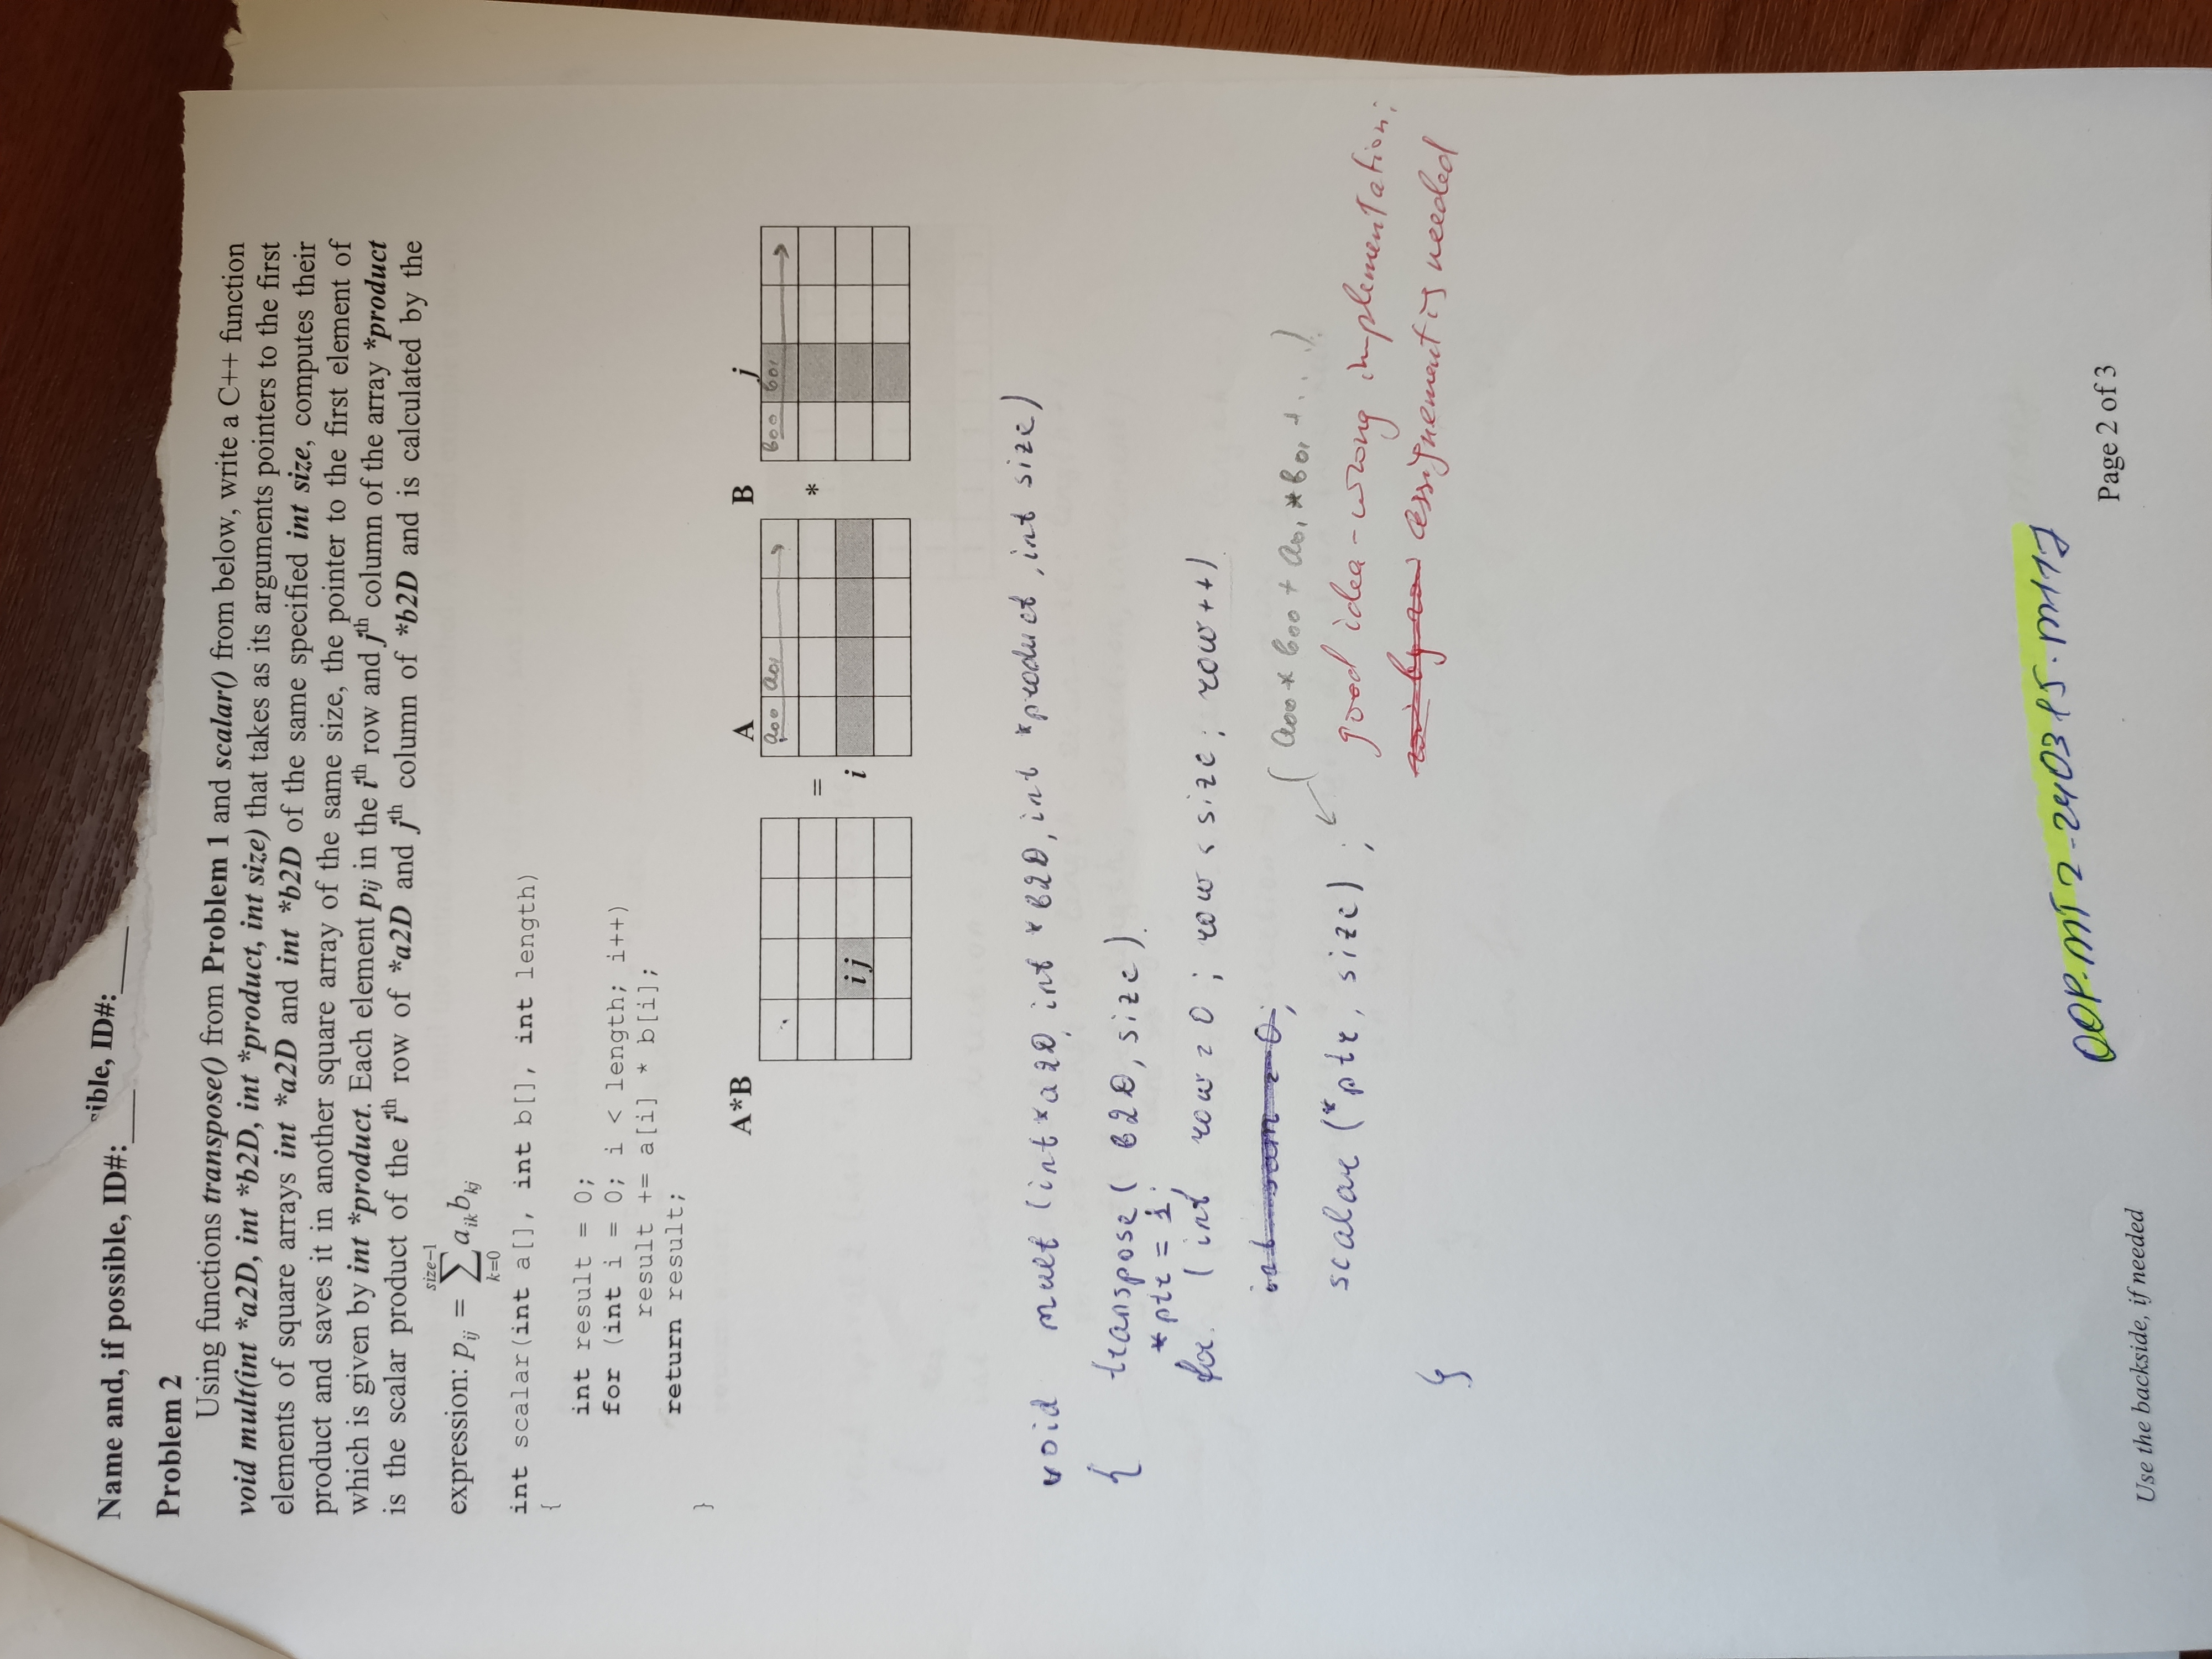 Name and, if possible, ID#:
ible, ID#:
Problem 2
Using functions transpose() from Problem 1 and scalar() from below, write a C++ function
void mult(int *a2D, int *b2D, int *product, int size) that takes as its arguments pointers to the first
elements of square arrays int *a2D and int *b2D of the same specified int size, computes their
product and saves it in another square array of the same size, the pointer to the first element of
which is given by int *product. Each element pij in the ith row and jth column of the array *product
is the scalar product of the ith row of *a2D and jth column of *b2D and is calculated by the
size–1
expression: pij = ∑ aik bkj
k=0
int scalar(int a[], int b[], int length)
{
int result = 0;
for (int i = 0; i < length; i++)
result += a[i] * b[i];
return result;
}
A*B A B j
a00 a01 b00 b01
= *
ij i
void mult (int *a2D, int *b2D, int *product, int size)
{ transpose( b2D, size).
*ptr = 1;
for (int row = 0; row < size; row++)
int sum = 0;
(a00 * b00 + a01 * b01 + ...)
scalar (*ptr, size);
good idea - wrong implementation;
row by row assignement is needed
}
OOP-MT2-240315-M117
Page 2 of 3
Use the backside, if needed